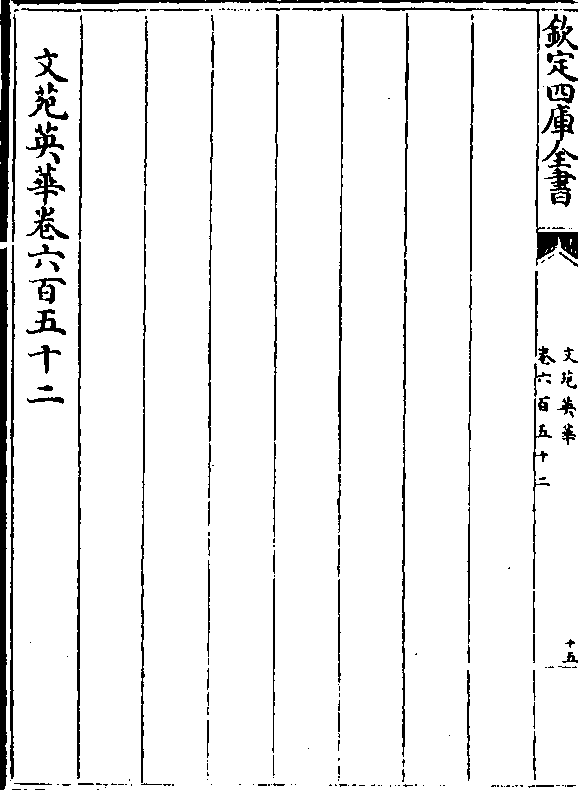 欽定四庫全書
文苑英華
卷六百五十二
十五
文苑英華卷六百五十二